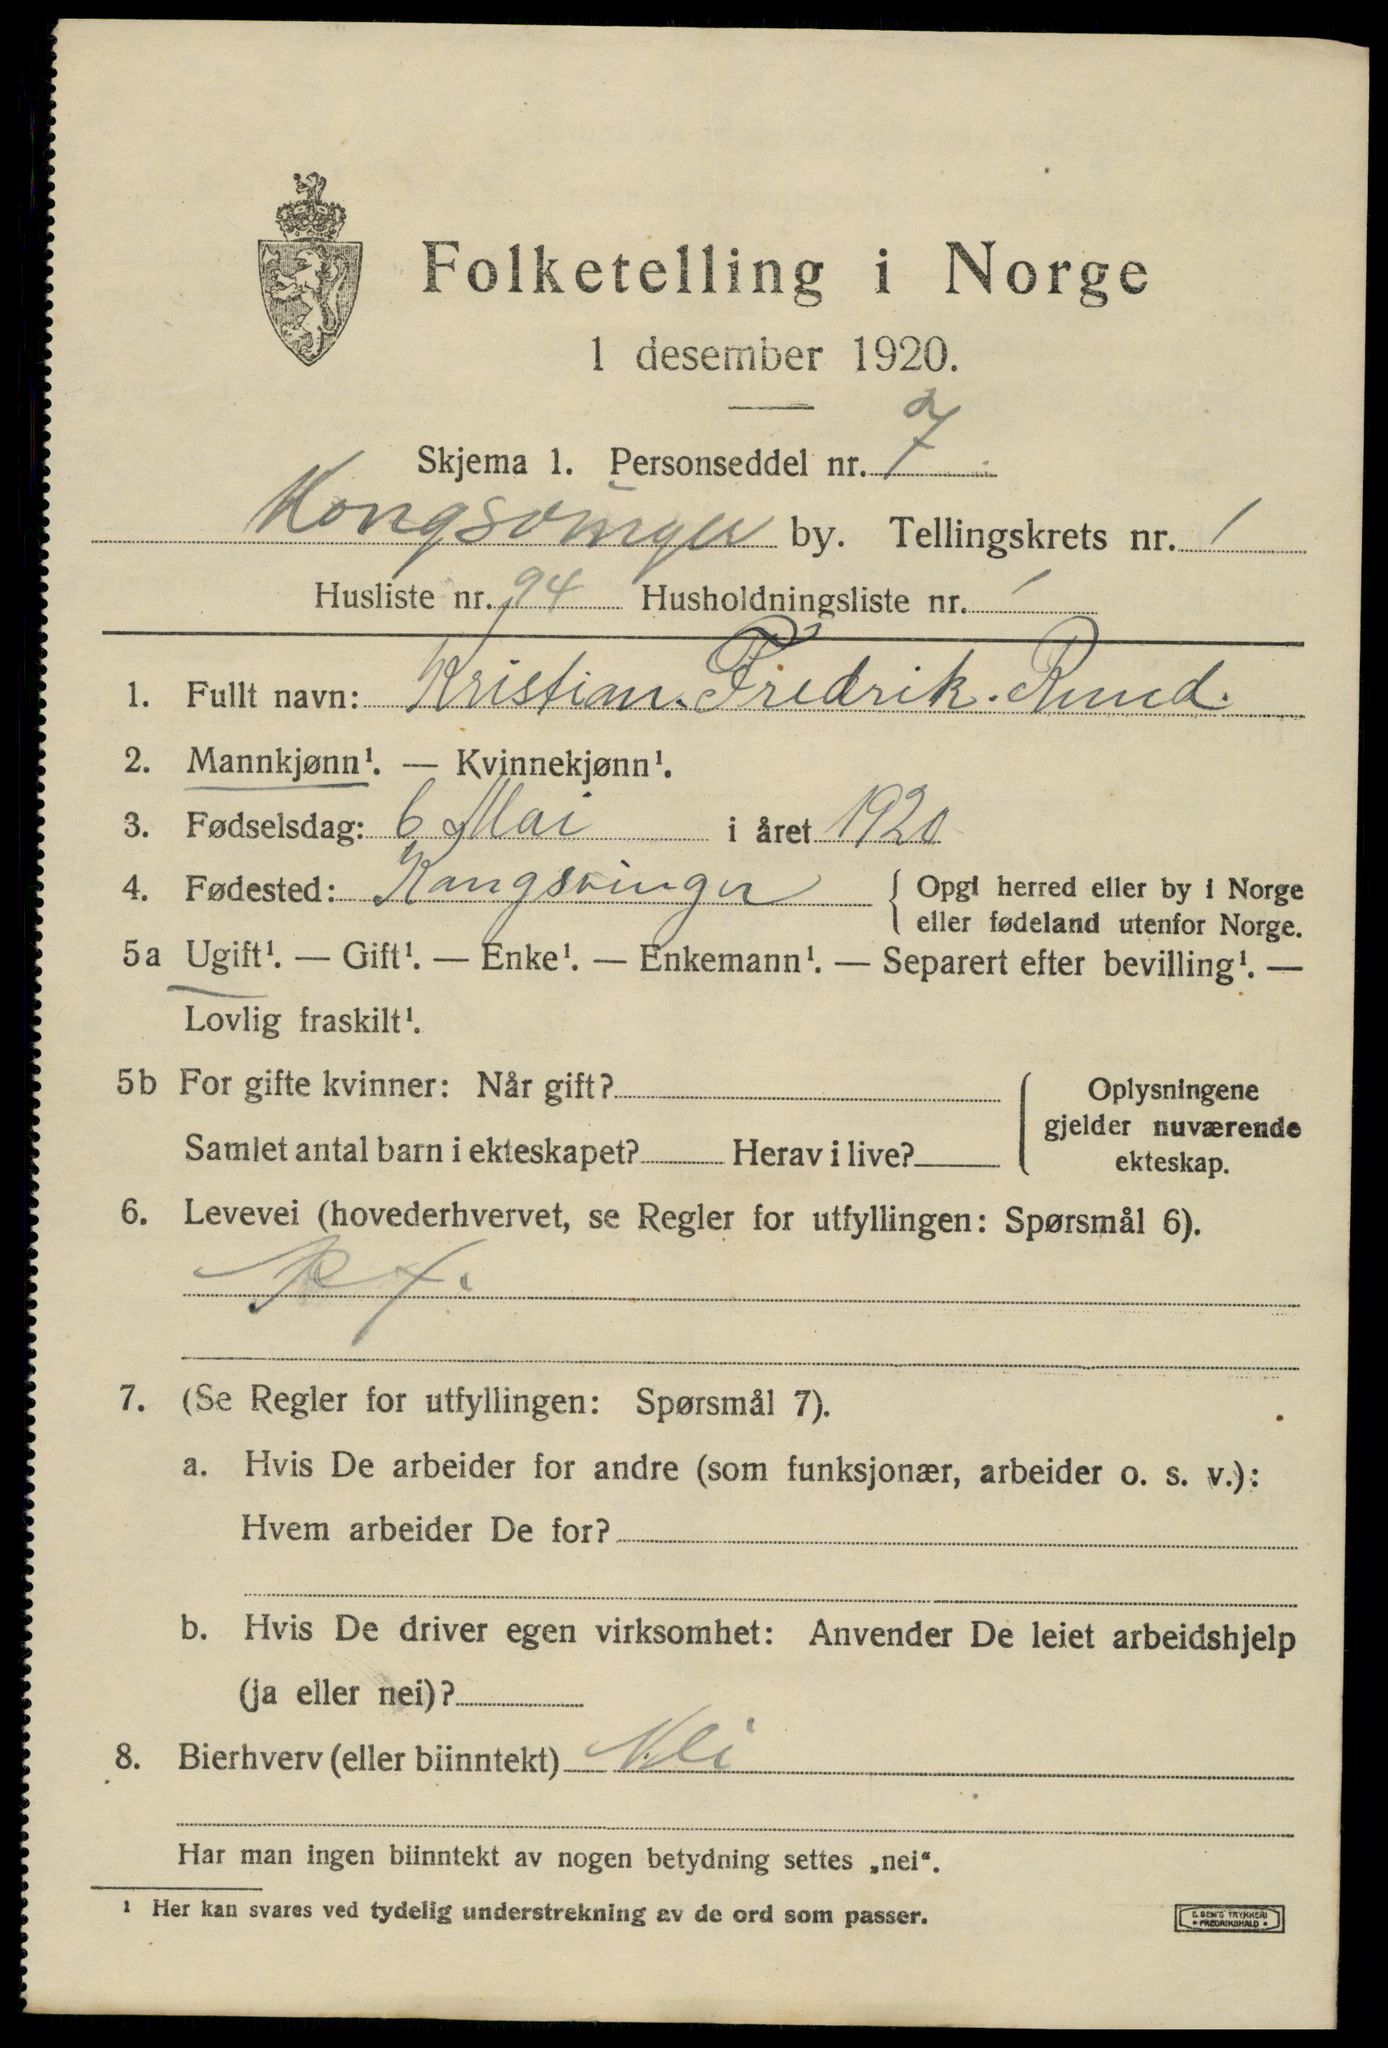 Folketelling i Norge
1 desember 1920.
Skjema 1. Personseddel nr. 7
Kongsvinger by. Tellingskrets nr. 1
Husliste nr. 94 Husholdningsliste nr. 1
1. Fullt navn: Kristian. Fredrik. Ruud.
2. Mannkjønn¹. — Kvinnekjønn¹.
3. Fødselsdag: 6 Mai i året 1920
4. Fødested: Kongsvinger { Opgi herred eller by i Norge
eller fødeland utenfor Norge.
5a Ugift¹. — Gift¹. — Enke¹. — Enkemann¹. — Separert efter bevilling¹. —
Lovlig fraskilt¹.
5b For gifte kvinner: Når gift? { Oplysningene
gjelder nuværende
Samlet antal barn i ekteskapet? Herav i live? ekteskap.
6. Levevei (hovederhvervet, se Regler for utfyllingen: Spørsmål 6).
7. (Se Regler for utfyllingen: Spørsmål 7).
a. Hvis De arbeider for andre (som funksjonær, arbeider o. s. v.):
Hvem arbeider De for?
b. Hvis De driver egen virksomhet: Anvender De leiet arbeidshjelp
(ja eller nei)?
8. Bierhverv (eller biinntekt) Nei
Har man ingen biinntekt av nogen betydning settes „nei“.
¹ Her kan svares ved tydelig understrekning av de ord som passer.
E. SEM'S TRYKKERI
• FREDRIKSHALD •